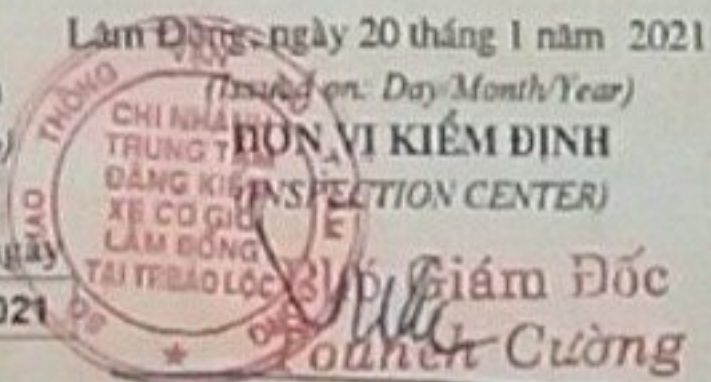 Lâm Đồng, ngày 20 tháng 1 năm 2021
(Issued on: Day/Month/Year)
ĐƠN VỊ KIỂM ĐỊNH
(INSPECTION CENTER)
CHI NHÁNH
TRUNG TÂM
ĐĂNG KIỂM
XE CƠ GIỚI
LÂM ĐỒNG
TẠI TP.BẢO LỘC
THÔNG
SỞ
ngày
021
Phó Giám Đốc
Pounch Cường